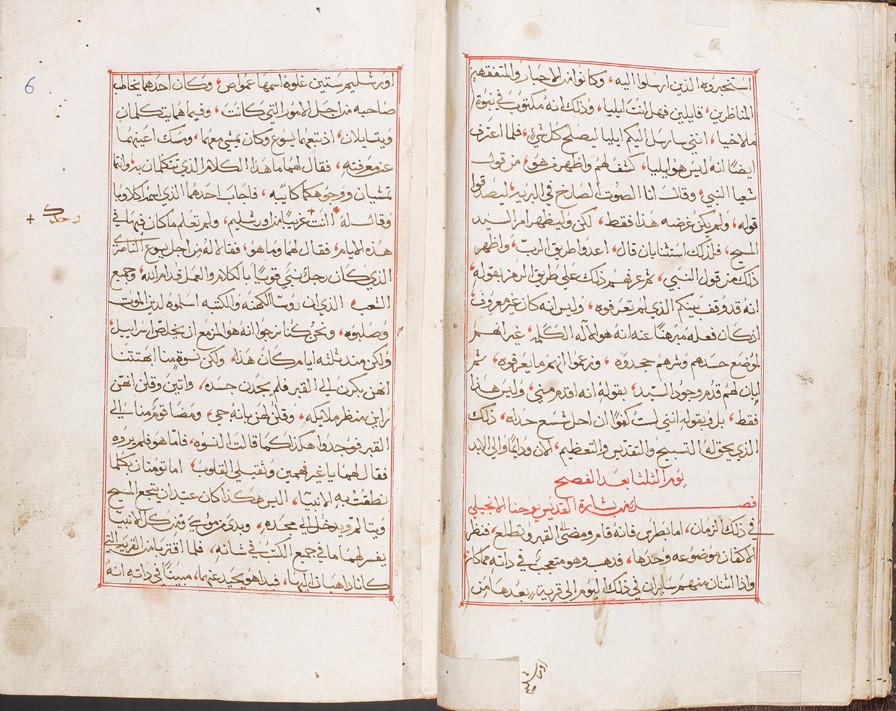 استخبروه الذين ارسلوا اليه، وكانوا من الاحبار والمتفقهين
المناظرين، قايلين فهل انت ايليا، وذلك انه مكتوب في نبوة
ملاخيا، انني سارسل اليكم ايليا ليصلح كل شي، فلما اعترف
ايضًا انه ليس هو ايليا، كشف لهم واظهر من هو، من قول
شعيا النبي، وقال انا الصوت الصارخ في البريه، ليصدقوا
قوله، ولم يكن غرضه هذا فقط، لكن وليظهر امر السيد
المسيح، فلذلك استثنا بان قال، اعدوا طريق الرب، واظهر
ذلك من قول النبي، ثم عرفهم ذلك على طريق الرمز بقوله
انه قد وقف بينكم الذي لم تعرفوه، وليس انه كان غير معروف
اذ كان فعله مبرهنًا عنه انه هو الاله الكلمه، غير انهم
لموضع حسدهم وشرهم جحدوه، وزعموا انهم ما يعرفوه، ثم
ابان لهم قدم وجود السيد، بقوله انه اقدم مني، وليس هذا
فقط، بل وبقوله انني لست كفوًا ان احل شسع حذايه، ذلك
الذي يحق له التسبيح والتقديس والتعظيم، الان ودايمًا والى الابد
يوم الثلثا بعد الفصح
فصل من بشارة القديس يوحنا الانجيلي
في ذلك الزمان، اما بطرس فانه قام ومضى الى القبر وتطلع، فنظر
الاكفان موضوعه وحدها، فذهب وهو متعجب في ذاته مما كان
واذا اثنان منهم سايران في ذلك اليوم الى قريه بعدها من
اورشليم
6
اورشليم ستين غلوه اسمها عمواص، وكان احدهما يخاطب
صاحبه من اجل الامور التي كانت، وفيما هما يتكلمان
ويتسايلان، اذ تبعهما يسوع وكان يمشي معهما، ومسك اعينهما
عن معرفته، فقال لهما ما هذا الكلام الذي تتكلمان به وانتما
تمشيان ووجوهكما كايبه، فاجاب احدهما الذي اسمه اكلاوبا
وقال له انت غريبًا من اورشليم، ولم تعلم ما كان فيها في
وحدك
هذه الايام، فقال لهما وما هو، فقالا له من اجل يسوع الناصري
الذي كان رجل نبي قويًا بالكلام والعمل قدام الله، وجميع
الشعب، الذي ان روسا الكهنه والكتبه اسلموه لدين الموت
وصلبوه، ونحن كنا نرجوا انه هو المزمع ان يخلص اسراييل
ولكن منذ ثلثه ايام كان هذا، ولكن نسوة منا ابهتتنا
انهن بكرن الى القبر فلم يجدن جسده، واتين وقلن انهن
راين منظر ملايكه، وقلن لهن بانه حي، ومضا قوم منا الى
القبر فوجدوا هكذا كما قالت النسوه، فاما هو فلم يروه
فقال لهما يا غير فهمين وثقيلي القلوب، اما تومنان بكلما
نطقت به الانبيا، اليس هكذا كان عتيدان يتجع المسيح
ويتالم ويدخل الى مجده، وبدى من موسى ومن كل الانبيا
يفسر لهما ما في جميع الكتب في شانه، فلما اقتربا من القريه التي
كانا ذاهبان اليها، فبدا هو يحيد عنهما، مبينًا في ذاته انه